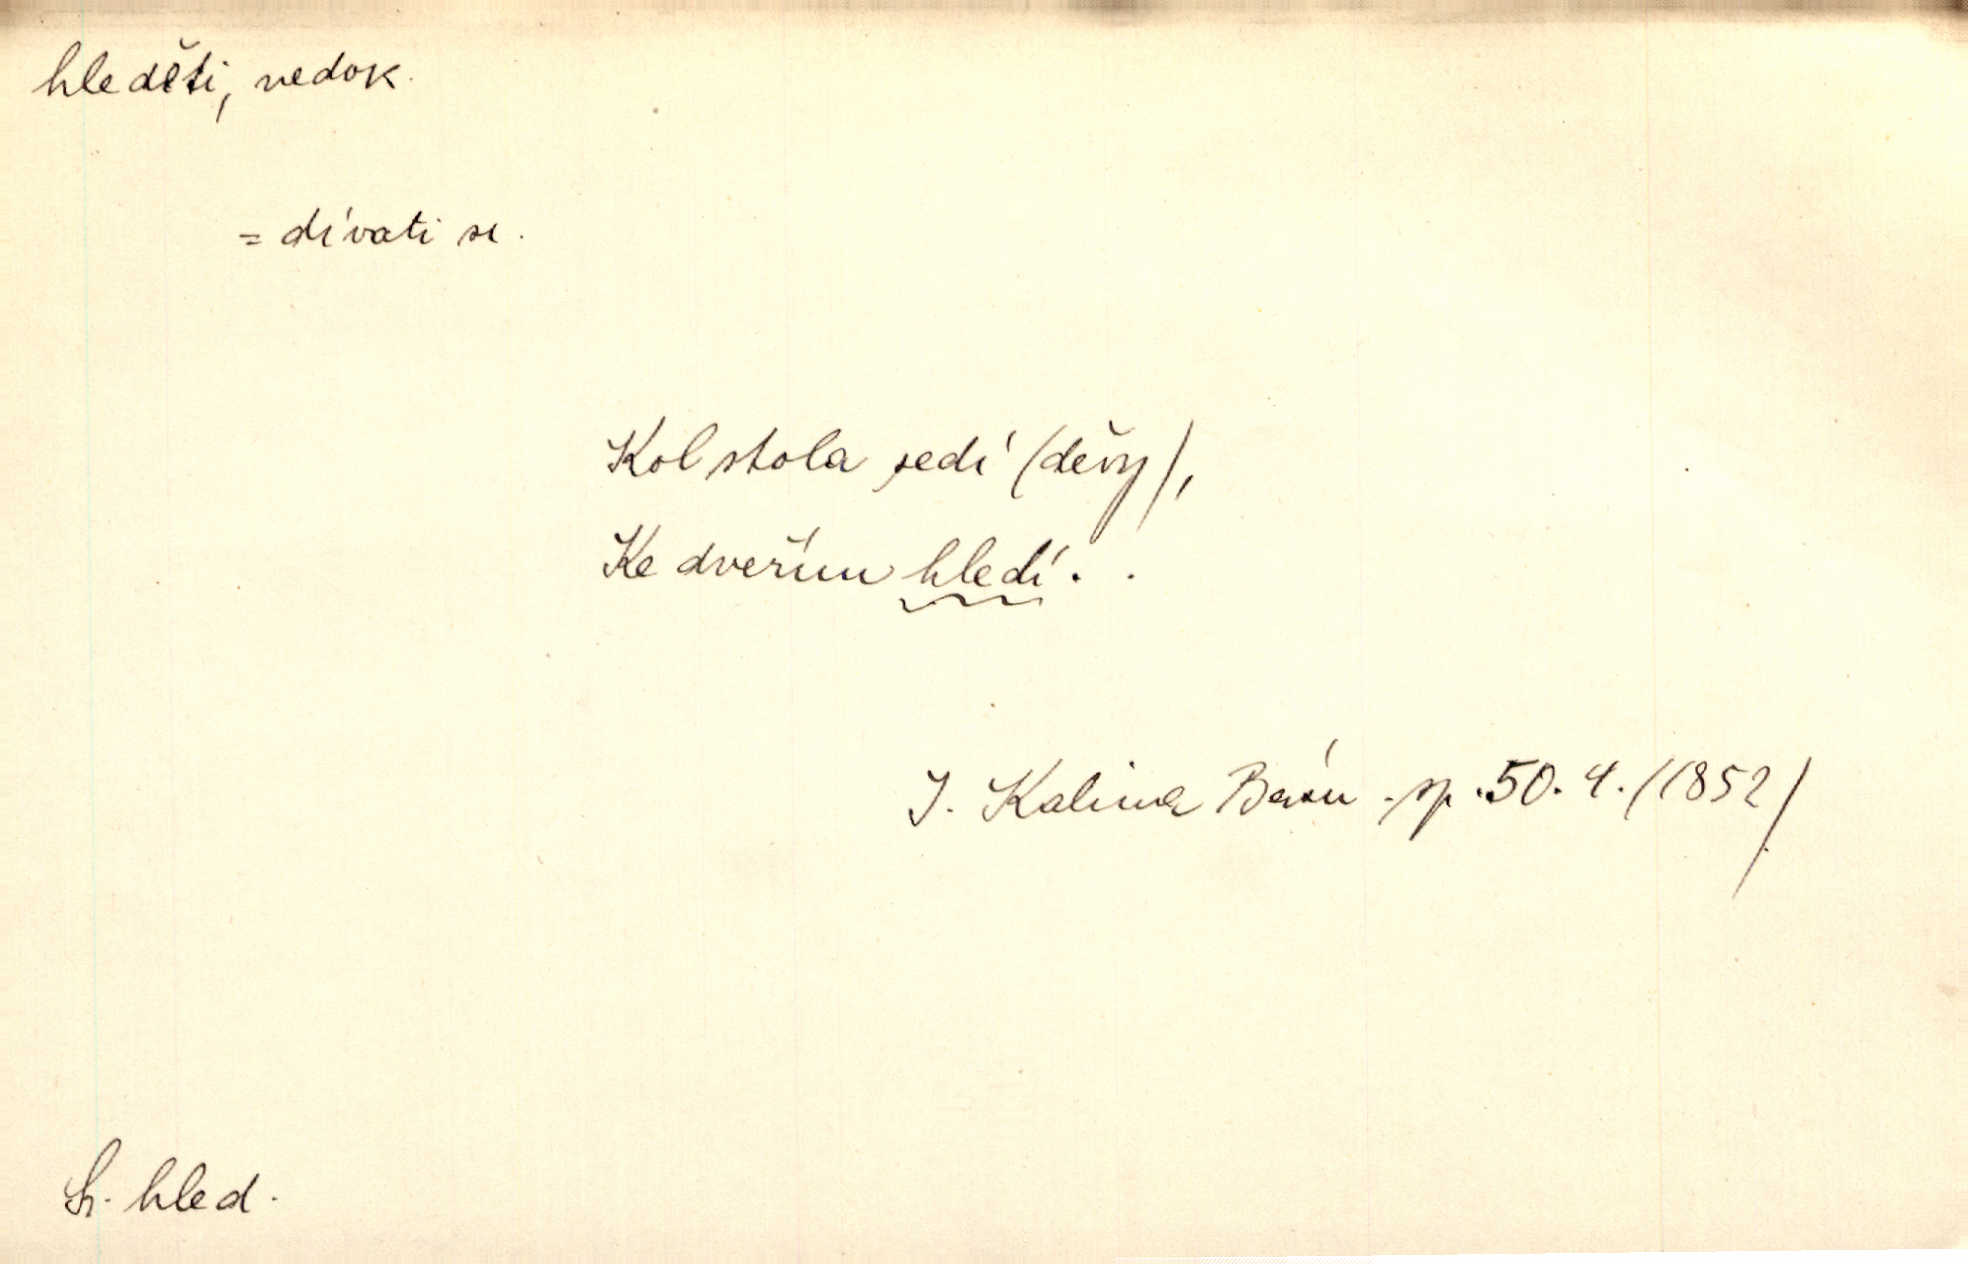 hleděti, nedok.
= dívati se.
Kol stola sedí (děvy),
Ke dveřím hledí. .
J. Kalina Básn. sp. 50. 4. (1852)
Sr. hled.